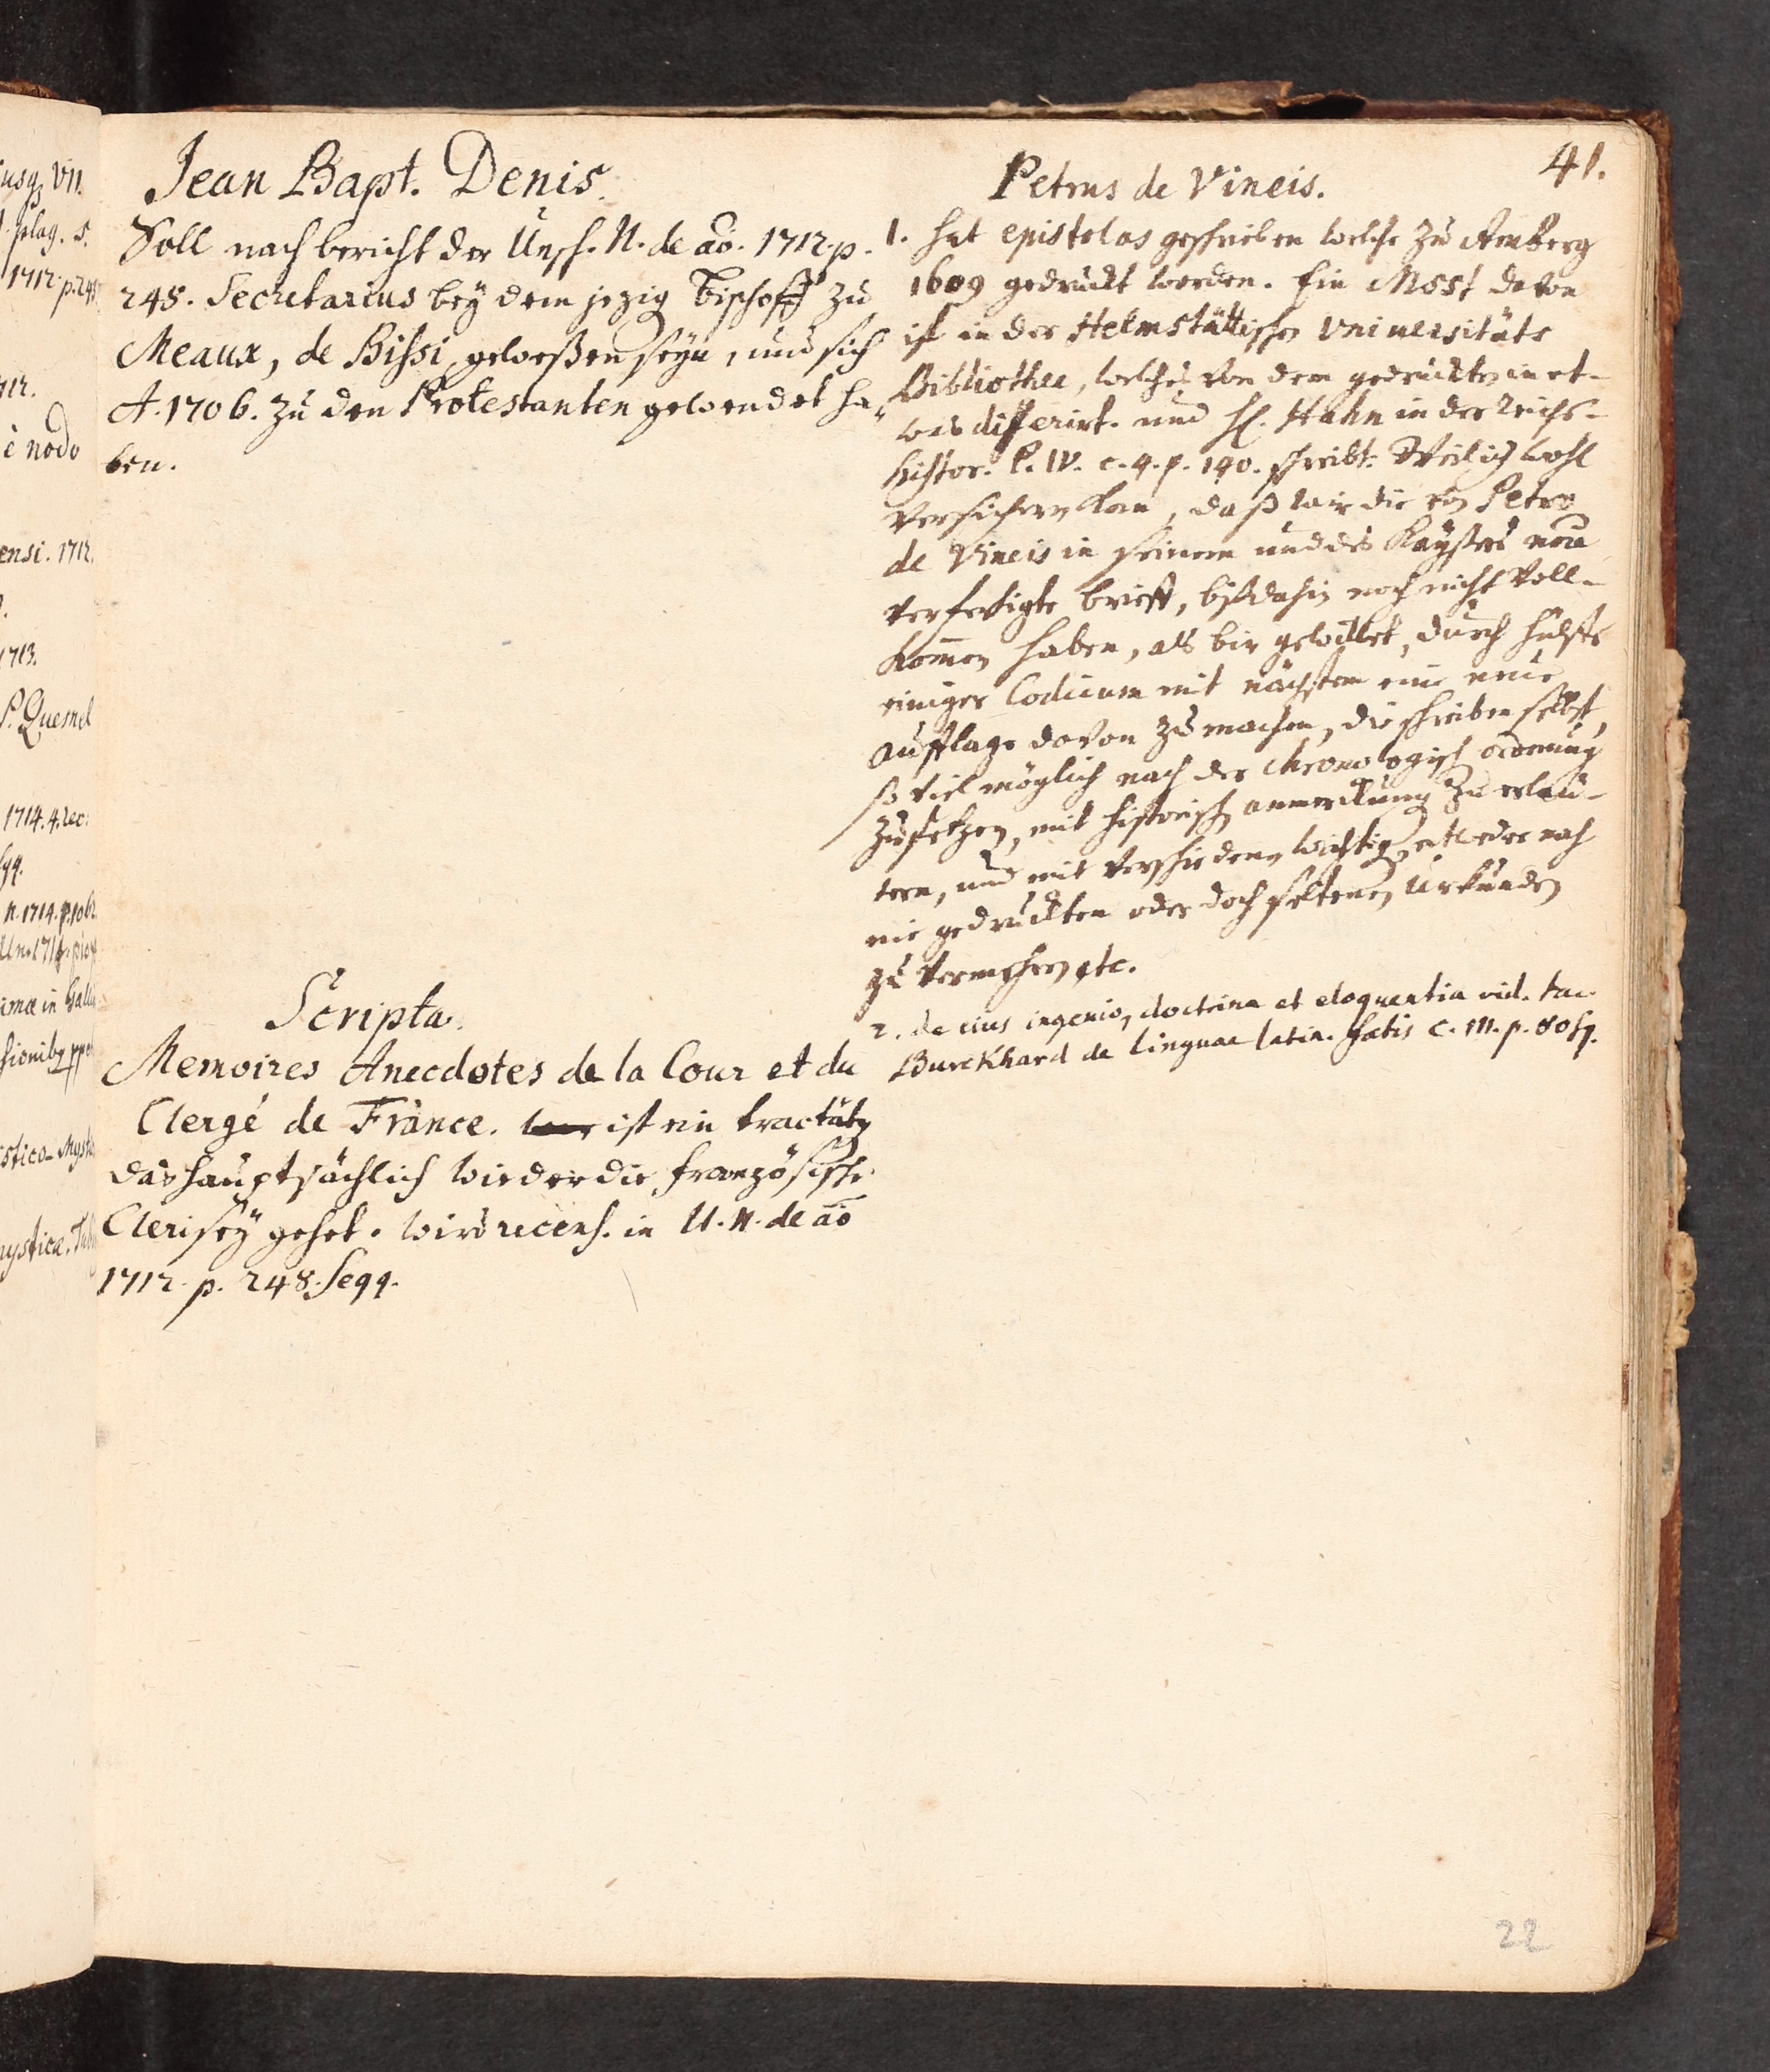 41.
Jean Bapt. Denis.
Soll nach bericht der Unsch. N. de ao. 1712. p.
245. Secretarius bey dem jezig Bischoff zu
Meaux, de Bissi geweßen seyn, und sich
A. 1706. zu den Protestanten gewendet ha„
ben.
Scripta.
Memoires Anecdotes de la Cour et du
Clergé de France. ist ein tractätg
das hauptsächlich wieder die französische
Clerisey gehet. wird recens. in U. N. de ao
1712. p. 248. seqq.
Petrus de Vineis.
1. hat epistolas geschrieben welche zu Amberg
1609 gedruckt worden. Ein Msst davon
ist in der Helmstättischen Vniuersitäts
Bibliothec, welches von dem gedruckten in et-
was differirt. und H. Hahn in der Reichs-
histor. P. IV. c. 4. p. 190. schreibt: Weil ich wohl
versichern kan, daß wir die von Petro
de Vineis in seinem und des Kaysers
verfertigte brieff, biß dahin noch nicht voll-
kommen haben, als bin gewillet, durch hülffe
einiger Codicum mit nächstem eine neue
aufflage davon zu machen, die schreiben selbst,
so viel möglich nach der chronologisch ordnung
zu setzen, mit historisch anmerkung zu erläu-
tern, und mit verschiedenen wichtigen, entweder noch
nie gedruckten oder doch seltenen Urkunden
zu vermehren etc.
2. de eius ingenio, doctrina et eloquentia vid. Iac.
Burckhard de linguae latin. fatis c. III. p. 80 sq.
22